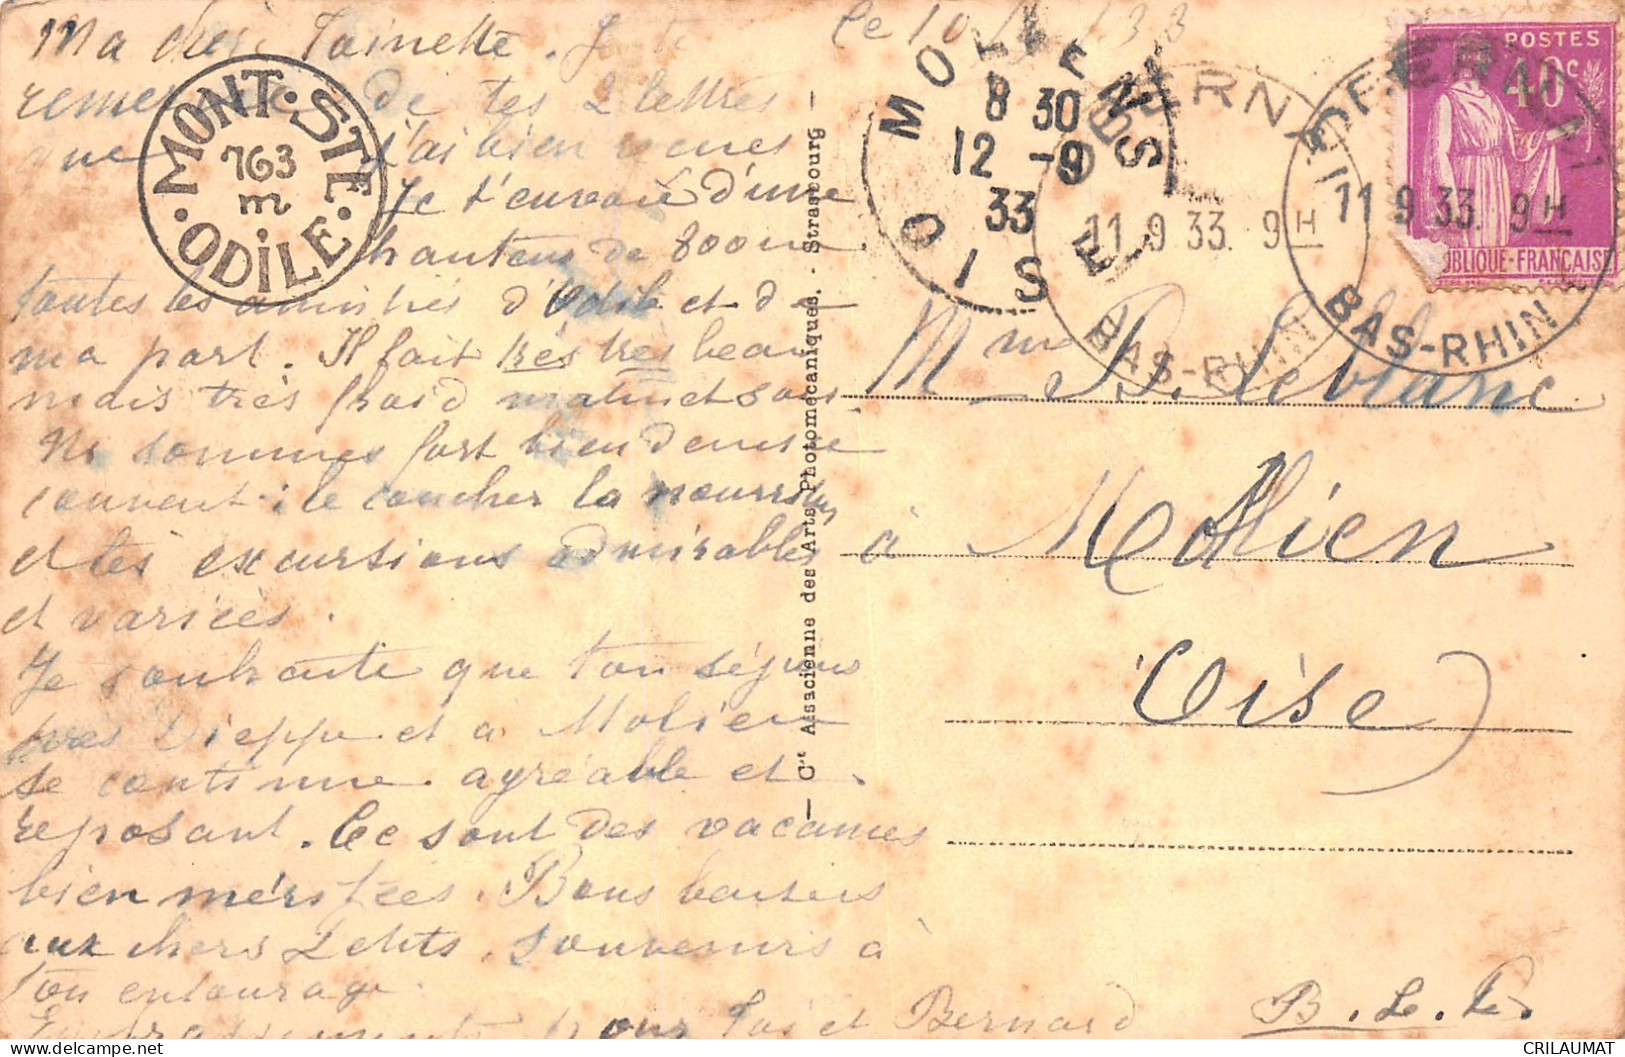 Ma chère Toinette. Je te
remercie de tes 2 lettres
que j'ai bien reçues
Je t'envoie d'une
hauteur de 800m
toutes les amitiés d'Odile et de
ma part. Il fait très très beau
mais très froid matin et soir
Ns sommes fort bien dans ce
couvent : le coucher la nourriture
et les excursions admirables
et variées.
Je souhaite que ton séjour
vers Dieppe et à Molien
se continue agréable et
reposant. Ce sont des vacances
bien méritées. Bons baisers
aux chers petits. Souvenirs à
ton entourage.
pour toi et Bernard
B. L. K.
MONT·STE·ODILE·
763
m
Ct Assacienne des Arts Photomécaniques. - Strasbourg
Le 10
33
MOLIENS
8 30
12 -9
33
OISE
OBERNAI
11 9 33. 9H
BAS-RHIN
OBERNAI
11 9 33. 9H
BAS-RHIN
POSTES
40c
RÉPUBLIQUE-FRANÇAISE
Mme B. Leblanc
à Molien
Oise
CRILAUMAT